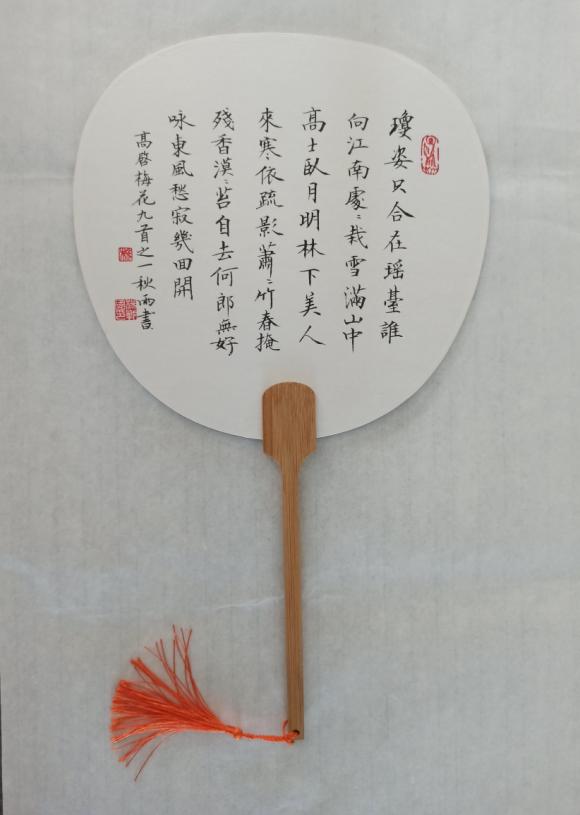 瓊姿只合在瑶臺誰
向江南處〻栽雪滿山中
高士臥月明林下美人
來寒依疏影蕭〻竹春掩
殘香漠〻苔自去何郎無好
咏東風愁寂幾回開
高啓梅花九首之一秋雨書